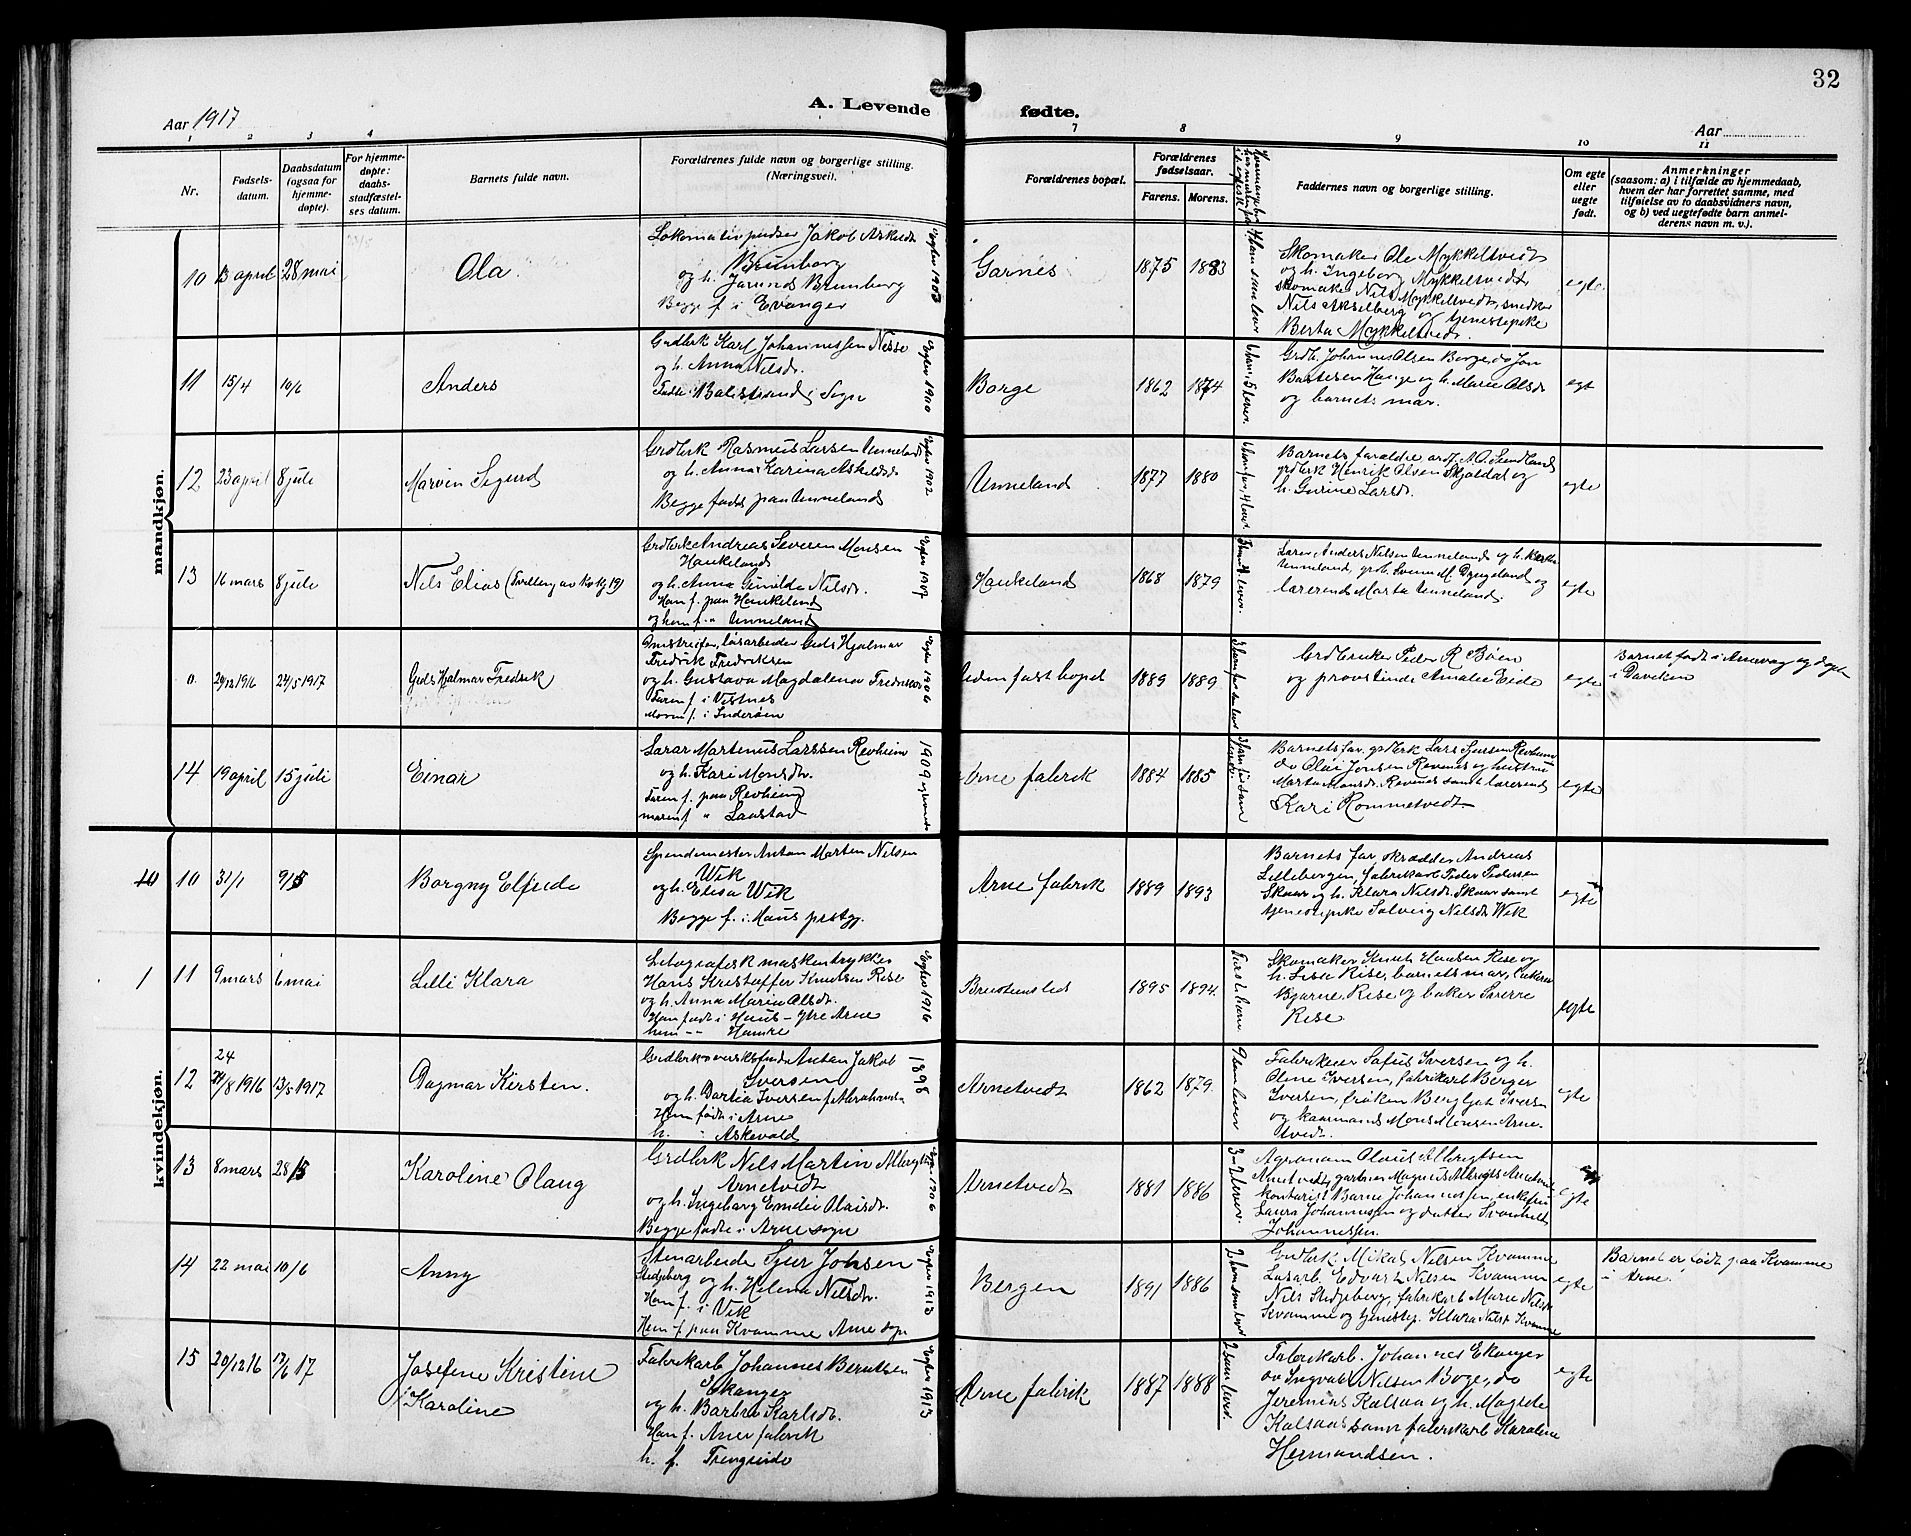 32
Aar 1917
A. Levende
fødte.
Aar
1
2
3
4
7
8
9
10
11
Nr.
Fødsels-
datum.
Daabsdatum
(ogsaa for
hjemme-
døpte).
For hjemme-
døpte:
daabs-
stadfæstel-
ses datum.
Barnets fulde navn.
Forældrenes fulde navn og borgerlige stilling.
(Næringsvei).
Forældrenes bopæl.
Forældrenes
fødselsaar.
Farens.
Morens.
Faddernes navn og borgerlige stilling.
Om egte
eller
uegte
født.
Anmerkninger
(saasom: a) i tilfælde av hjemmedaab,
hvem der har forrettet samme, med
tilføielse av to daabsvidners navn,
og b) ved uegtefødte barn anmel-
derens navn m. v.).
mandkjøn.
10
13 april
28 mai
Ola
Lokomotivpudser Jakob
Brunborg
og h. Brunborg
Begge f. i Evanger
Garnes
1875
1883
Skomaker Ole Mykkeltvedt
og h. Ingeborg Mykkeltvedt
skomaker Nils Mykkeltvedt, snedker
Nils Akselberg og tjenestepike
Berta Mykkeltvedt.
egte
11
15/4
10/6
Anders
Grdbrk Karl Johannessen Nesse
og h. Anna Nilsdr.
Født i Balestrand i Sogn
Egtev 1900
Borge
1862
1874
Grdb. Johannes Olsen Borge, do Jon
Bartesen Hauge og h. Marie Olsdr
og barnets mor.
egte
12
23 april
8 jule
Marvin Sigurd
Grdbrk Rasmus Larsen Unneland
og h. Anna Karina Askildsd
Begge født paa Unneland
Egtev 1902
Unneland
1877
1880
Barnets forældre,
grdbrk Henrik Olsen Skjoldal og
h. Gurine Larsdr.
egte
13
16 mars
8 jule
Nils Elias (Tvilling av Kv. Kj 19)
Grdbrk Andreas Severin Monsen
Haukeland
og h. Anna Gunilde Nilsdr.
Han f. paa Haukeland
og hun f. " Unneland
Haukeland
1868
1879
Lærer Anders Nilsen Unneland og h.
Unneland, grdb. M. Dyngeland og
lærerinde Marta Unneland.
egte
0
29/12 1916
24/5 1917
Hjalmar Fredrik
Omstreifer, løsarbeider Hjalmar
Fredrik Fredriksen
og h. Gustava Magdalena
Faren f. i Vestnes
Moren f. i Inderøen
Egtev 1906
Uden fast bopel
1889
1889
Grdbruker Peder R Bøen
og provstinde Amalie Eide
egte
Barnet født i Arnevaag og døpt
i Daviken
14
19 april
15 jule
Einar
Lærer Martinus Larssen Revheim
og h. Kari Monsdr.
Faren f. paa Revheim
moren f. "
1909
Arne fabrik
1884
1885
Barnets far, grdbrk Lars Revheim
do Olai Jonsen Revenes og hustru
Marta Monsdr. Revenes samt lærerinde
Kari Rommetvedt
egte
kvindekjøn.
10
31/1
9/5
Borgny Elfrida
Spindemester Anton Marten Nilsen
Wik
og h. Elisa Wik
Begge f. i Haus prstgj.
Arne fabrik
1889
1893
Barnets far, skrædder Andreas
Lillebergen, fabrikarb. Peder Pedersen
Skaar og h. Klara Nilsdr. Skaar samt
tjenestepike Solveig Nilsdr Wik
egte
1
11
9 mars
6 mai
Lilli Klara
Litografisk maskintrykker
Hans Kristoffer Knutsen Rise
og h. Anna Maria Olsdr.
Han født i Haus - Ytre Arne
hun -"- Hamre
Egtev 1916
1895
1894.
Første barn
Skomaker Knut Hansen Rise og
h. Lisa Rise, barnets mor,
Bjarne Rise og baker Sverre
Rise
egte
12
24
/8 1916
13/5 1917
Dagmar Kirsten.
Anton Jakob
Iversen
og h. Dortea Iversen f. Abrahamsen
Han født i Arne
h. " i Askevold
1898
Arnetvedt
1862
1879.
Fabrikeier Sofus Iversen og h.
Oline Iversen, fabrikarb Berger
Iversen, frøken Bergljot Iversen
og kaarmand Mons Monsen Arne-
tvedt.
egte
13
8 mars
28/5
Karoline Olaug
Grdbrk Nils Martin Albrigtsen
Arnetvedt
og h. Ingeborg Emelie Olaisdr.
Begge født i Arne sogn
Arnetvedt
1881
1886
3-2 lever.
Agronom Olaus Albrigtsen
Arnetvedt, gartner Magnus Albrigts Arnetvedt
kontorist Barne Johannessen, enkefru
Laura Johannessen og datter Svanhild
Johannessen.
egte
14
22 mai
10/6
Anny
Stenarbeide Sjur Johsen
Stedjeberg og h. Helena Nilsdr.
Han f. i Vik
Hun f. paa Kvamme Arne sogn
Egtev 1913
Bergen
1891
1886
Grdbrk Mikal Nilsen Kvamme
Løsarb. Edvart Nilsen Kvamme
Nils Stedjeberg, fabrikarb Marie Nilsdr
Kvamme og tjenestep. Klara Nilsd Kvamme
egte
Barnet er født paa Kvamme
i Arne.
15
20/12 16
17/6 17
Josefine Kristine
Karoline
Fabrikarb Johannes Berntsen
Ekanger
og h. Barbra Karlsdr.
Han f. Arne fabrik
h. f. Trengereide
Egtev 1913
Arne fabrik
1887
1888
Fabrikarb. Johannes Ekanger
do Ingvald Nilsen Boge, do
Jeremias Kalsaa og h. Magda
Kalsaas samt fabrikarb Karoline
Hermandsen.
egte